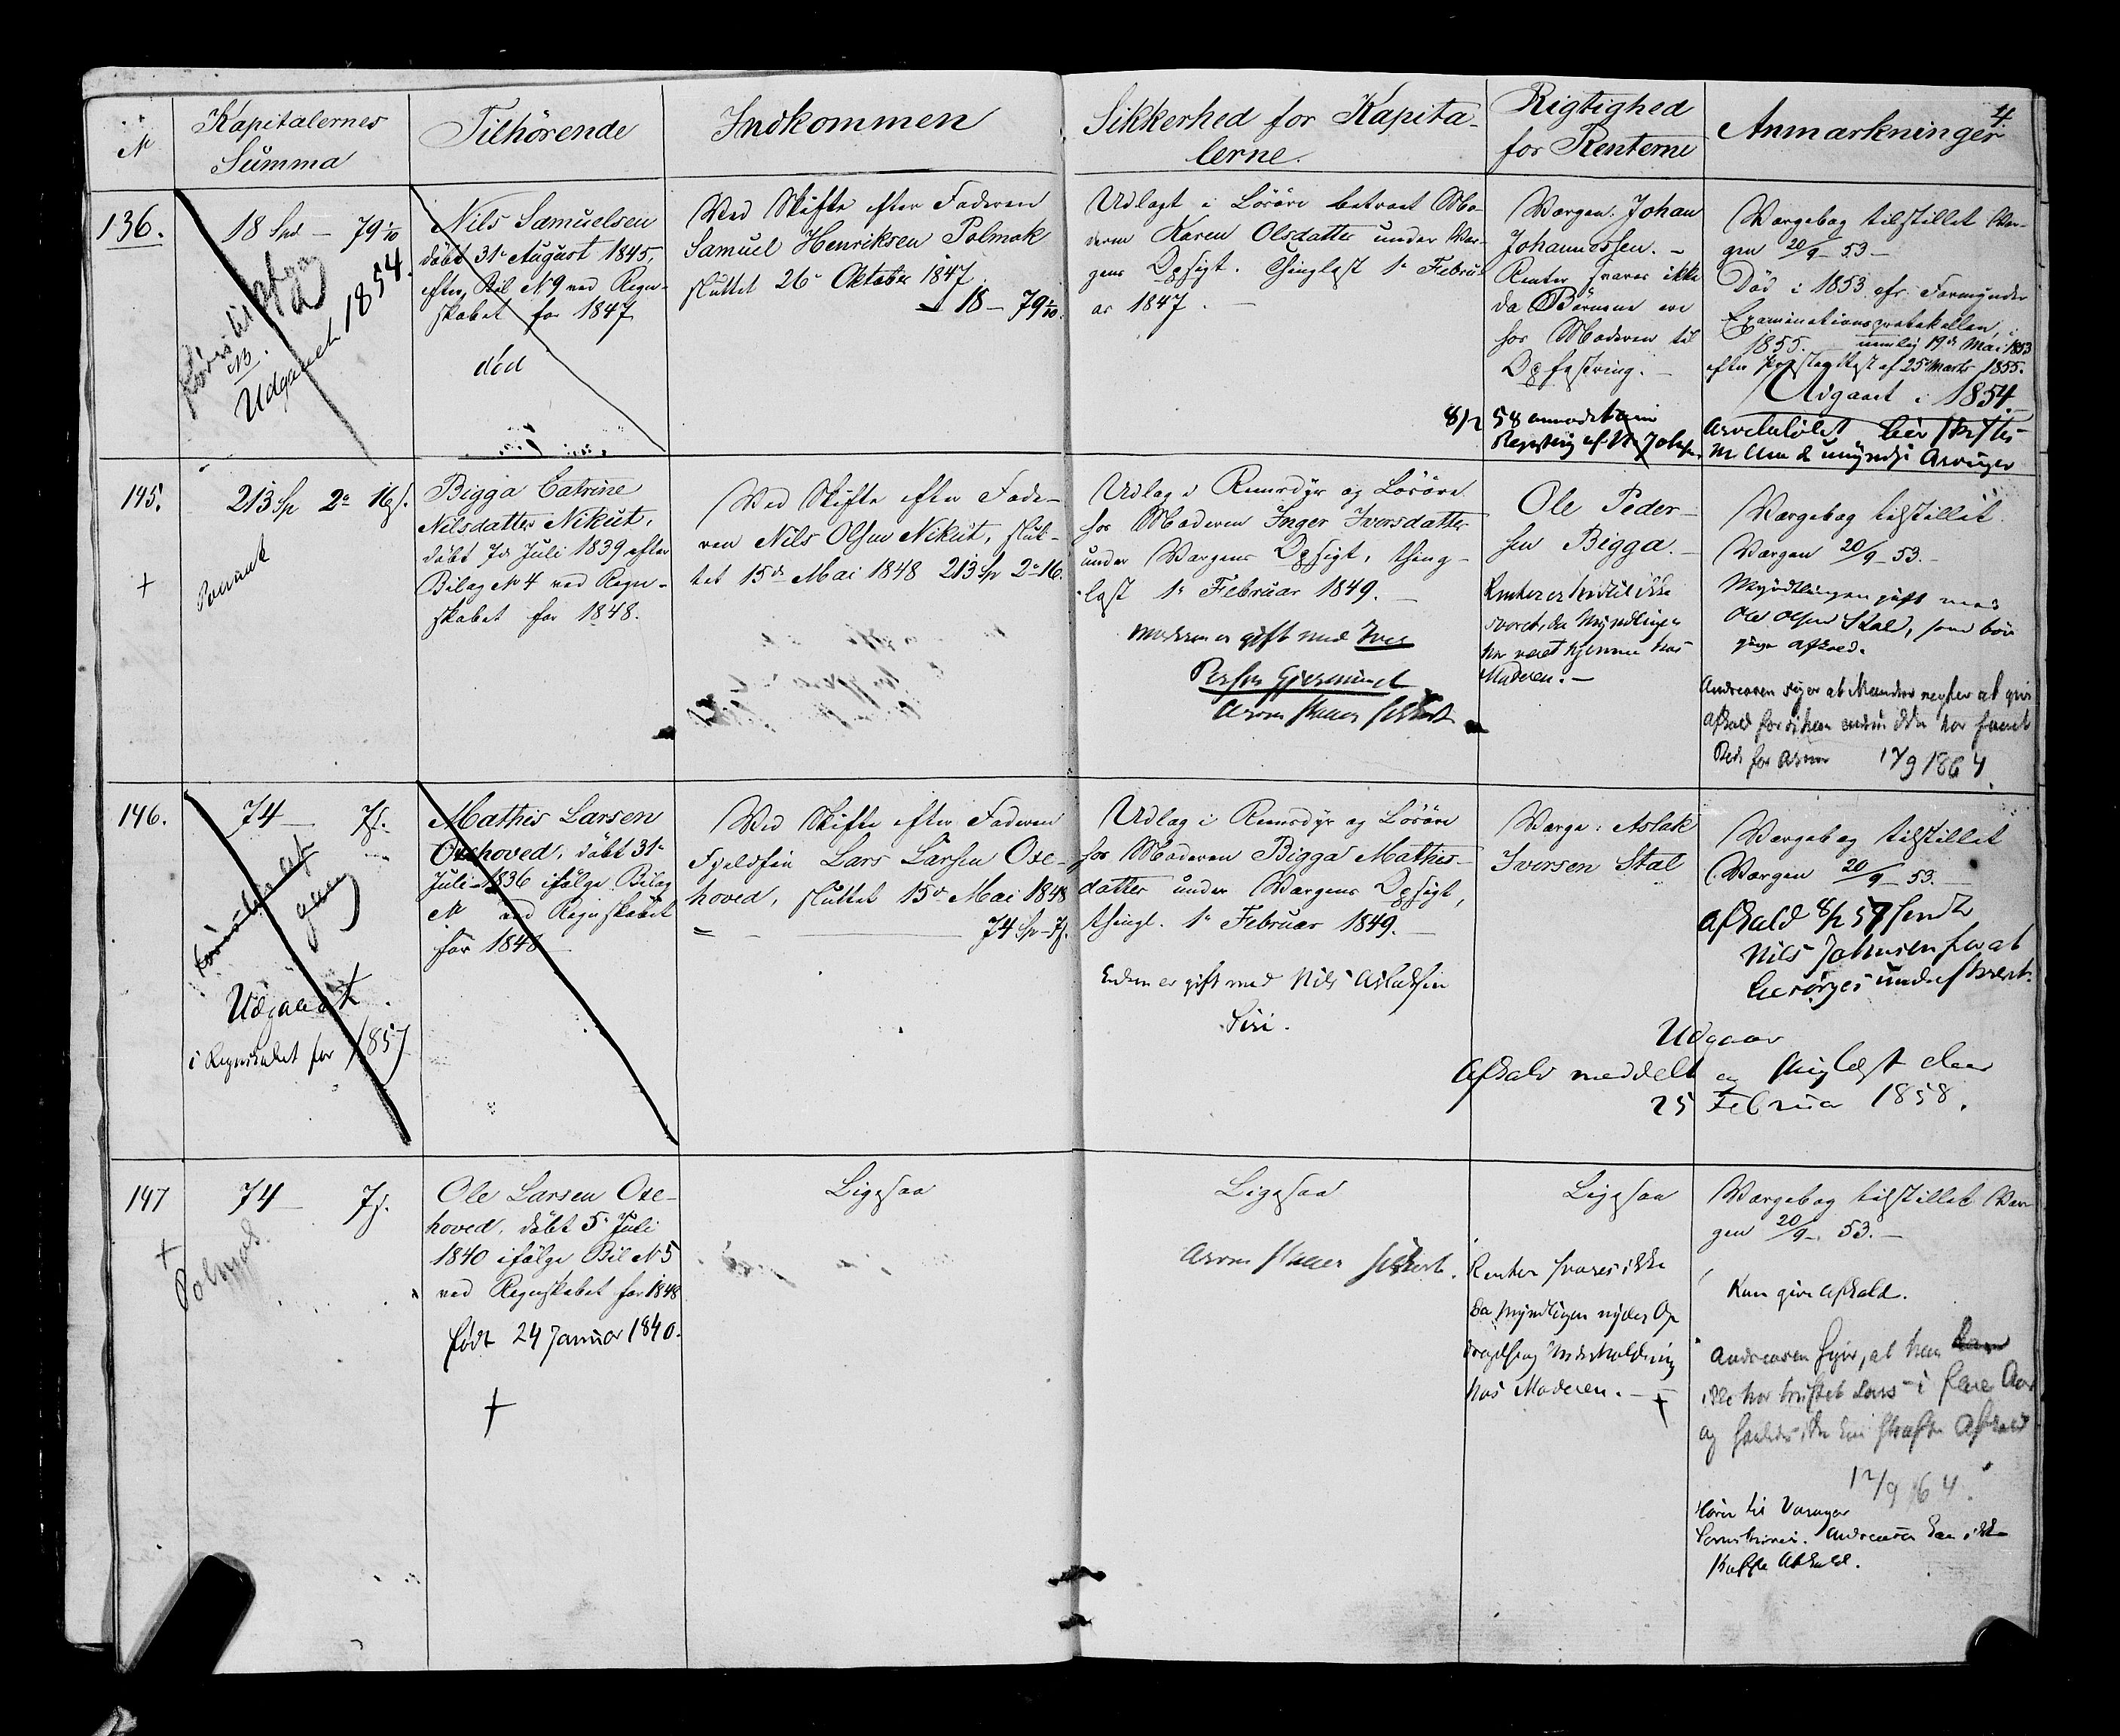 4
№
Kapitalernes
Summa
Tilhörende
Indkommen
Sikkerhed for Kapita-
lerne.
Rigtighed
for Renterne
Anmærkninger
136.
18 Spd — 79 1/10
Udgaaet 1854.
Nils Samuelsen
döbt 31te August 1845,
efter Bil № 9 ved Regn-
skabet for 1847
död
Ved Skifte efter Faderen
Samuel Henriksen Polmak
sluttet 26de Oktober 1847
18 — 79 1/10.
Udlagt i Lösöre betroet Mo-
deren Karen Olsdatter under Vær-
gens Opsigt. Thinglæst 1te Febru-
ar 1847.
Værgen: Johan
Johannessen. —
Renter svares ikke
da Börnene ere
hos Moderen til
Opfostring. —
8/2 58 anmodet om
af N. Johnsen
Værgebog tilstillet Vær-
gen 20/9 53 —
Död i 1853 cfr. Formynder
Examinationsprotokollen, i
1855. nemlig 19de Mai 1853
efter Præsteattest af 25 Marts 1855.
Udgaaet i 1854
Arvelulet bör skiftes
umyndige Arvinger
145.
213 Sp 2 — 16 s.
+
Polmak
Bigga Catrine
Nilsdatter Nikut,
döbt 7de Juli 1839 efter
Bilag № 4 ved Regn-
skabet for 1848.
Ved Skifte efter Fade-
ren Nils Olsen Nikut, slut-
tet 15de Mai 1848 213 Sp 2 — 16.
Udlæg i Reensdyr og Lösöre
hos Moderen Inger Iversdatter
under Værgens Opsigt, thing-
læst 1te Februar 1849. —
Moderen er gift med Iver
Persen
Arven skal være sikkert
Ole Peder-
sen Bigga. —
Renter er hidtil ikke
svaret, da Myndlingen
har været hjemme hos
Moderen. —
Værgebog tilstillet
Værgen 20/9 53. —
Myndlingen gift med
Ole Olsen Stal, som bör
give Afkald.
Andreasen siger at Manden negter at give
Afkald fordi han endnu ikke har faaet
Rede for Arven 17/9 1864.
146.
74 — 7 s.
Udgaaet
i Regnskabet for 1857
Mathis Larsen
Oxehoved, döbt 31te
Juli 1836 ifölge Bilag
№ ved Regnskabet
för 1848
Ved Skifte efter Faderen
Fjeldfin Lars Larsen Oxe-
hoved, sluttet 15de Mai 1848
74 Sp — 7 s.
Udlæg i Reensdyr og Lösöre
hos Moderen Bigga Mathis-
datter under Værgens Opsigt,
thingl. 1te Februar 1849. —
Enken er gift med Nils Aslaksen
Siri.
Værge: Aslak
Iversen Stal
Værgebog tilstillet
Værgen 20/9 53. —
Afkald 8/2 57 sendt
Nils Johnsen for at
besörges underskrevet.
Udgaar
Afkald meddelt og thinglæst den
25 Februar 1858.
147
74 — 7 s.
+
Polmak.
Ole Larsen Oxe-
hoved, döbt 5te Juli
1840 ifölge Bil № 5
ved Regnskabet for 1848
födt 24 Januar 1840.
+
Ligesaa
Ligesaa
Arven skal være sikkert.
Ligesaa
Renter svares ikke
da Myndlingen nyder Op-
dragelse og Underholdning
hos Moderen. —
+
Værgebog tilstillet Vær-
gen 20/9 53. —
Kan give Afkald.
Andreasen siger, at han
ikke har truffet Lars i flere Aar
og saaledes ikke kan skaffe Afkald
12/9 64.
Hörer til Varanger
Andreasen kan ikke
skaffe Afkald.